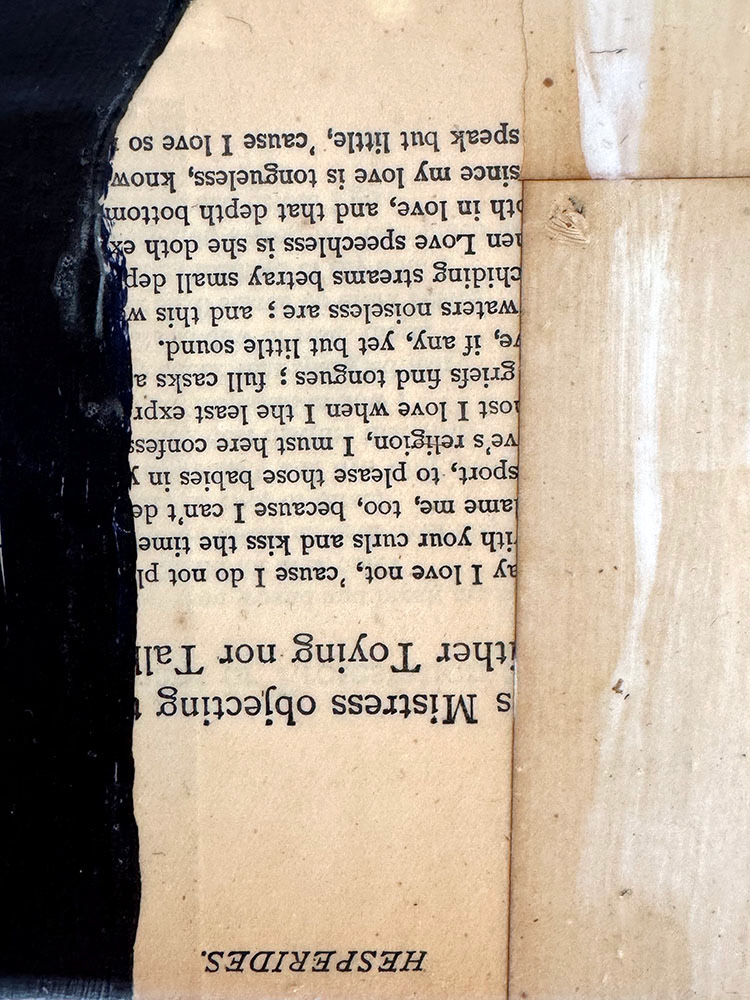 HESPERIDES.
s Mistress objecting
ther Toying nor Talk
ay I love not, 'cause I do not pl
ith your curls and kiss the time
lame me, too, because I can't de
sport, to please those babies in y
ve's religion, I must here confess
ost I love when I the least expr
griefs find tongues ; full casks a
ve, if any, yet but little sound.
waters noiseless are ; and this w
chiding streams betray small dep
hen Love speechless is she doth ex
oth in love, and that depth bottom
since my love is tongueless, know
speak but little, 'cause I love so